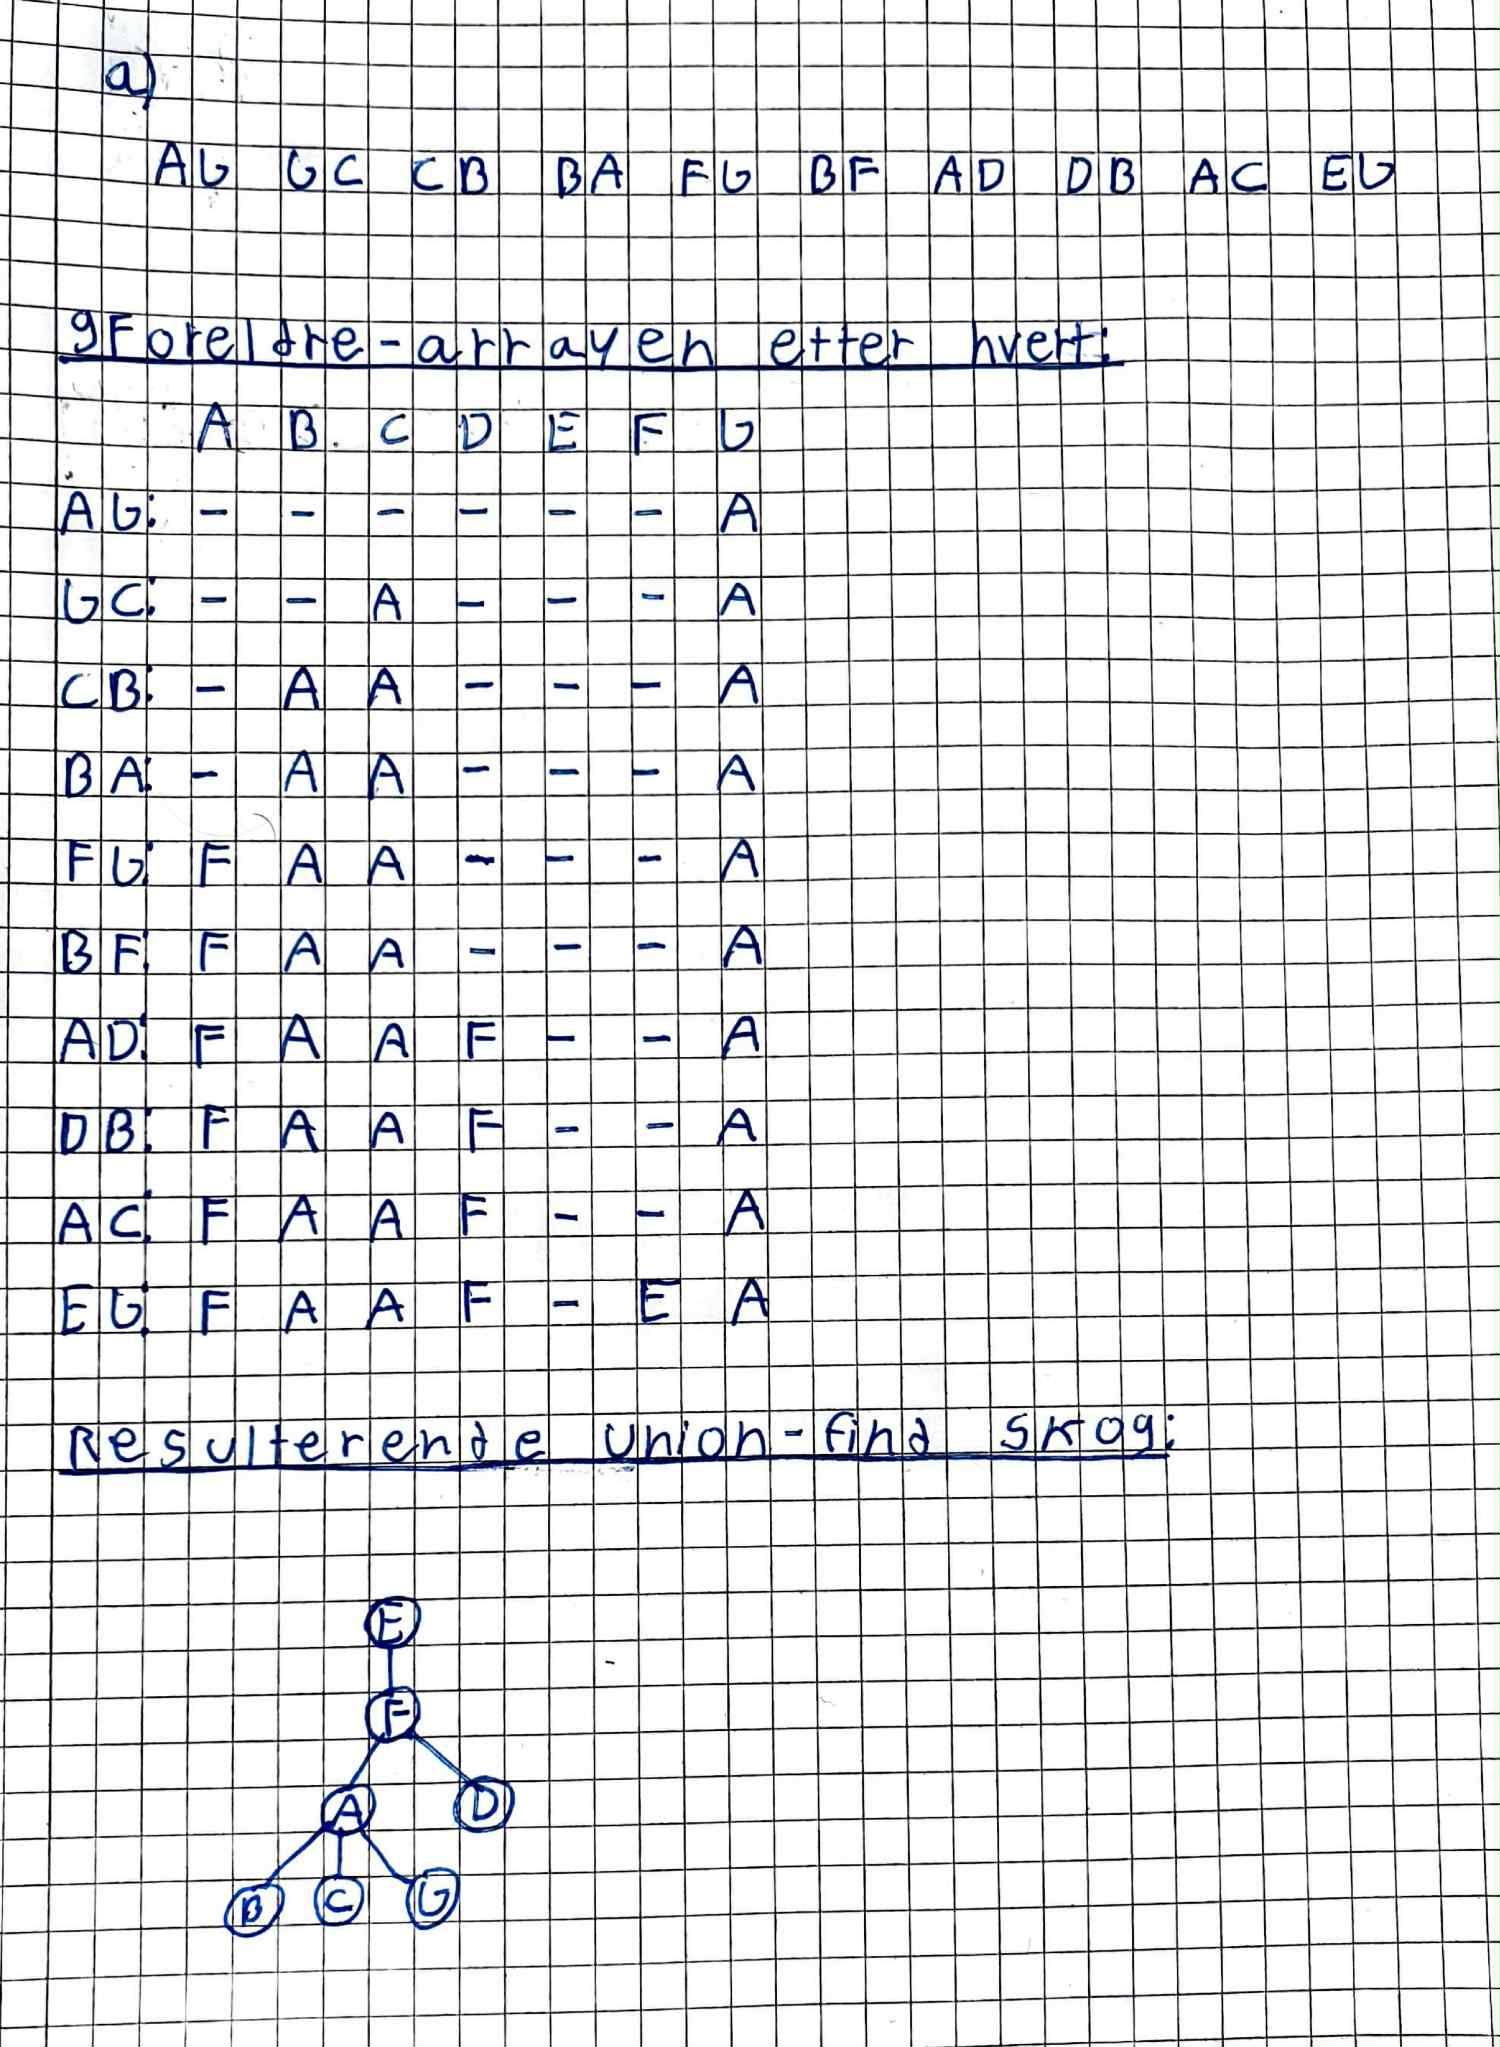 a)
AG GC CB BA FG BF AD DB AC EG
gForeldre-arrayen etter hvert:
A B C D E F G
AG: - - - - - - A
GC: - - A - - - A
CB: - A A - - - A
BA: - A A - - - A
FG: F A A - - - A
BF: F A A - - - A
AD: F A A F - - A
DB: F A A F - - A
AC: F A A F - - A
EG: F A A F - E A
Resulterende union-find skog:
E
F
A D
B C G